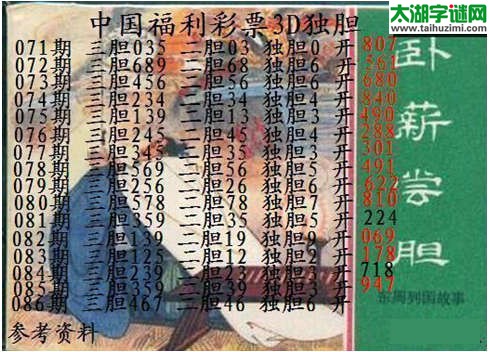 太湖字谜网
www.taihuzimi.com
中国福利彩票3D独胆
071期 三胆035 二胆03 独胆0 开 807
072期 三胆689 二胆68 独胆6 开 561
073期 三胆268 二胆26 独胆6 开 680
074期 三胆234 二胆34 独胆4 开 840
075期 三胆139 二胆13 独胆3 开 490
076期 三胆245 二胆45 独胆4 开 288
077期 三胆345 二胆35 独胆3 开 301
078期 三胆569 二胆56 独胆5 开 491
079期 三胆256 二胆26 独胆6 开 622
080期 三胆578 二胆78 独胆7 开 810
081期 三胆359 二胆35 独胆5 开 224
082期 三胆139 二胆19 独胆9 开 069
083期 三胆125 二胆12 独胆2 开 178
084期 三胆239 二胆23 独胆3 开 718
085期 三胆359 二胆39 独胆9 开 947
086期 三胆467 二胆46 独胆6 开
参考资料
卧薪尝胆
东周列国故事